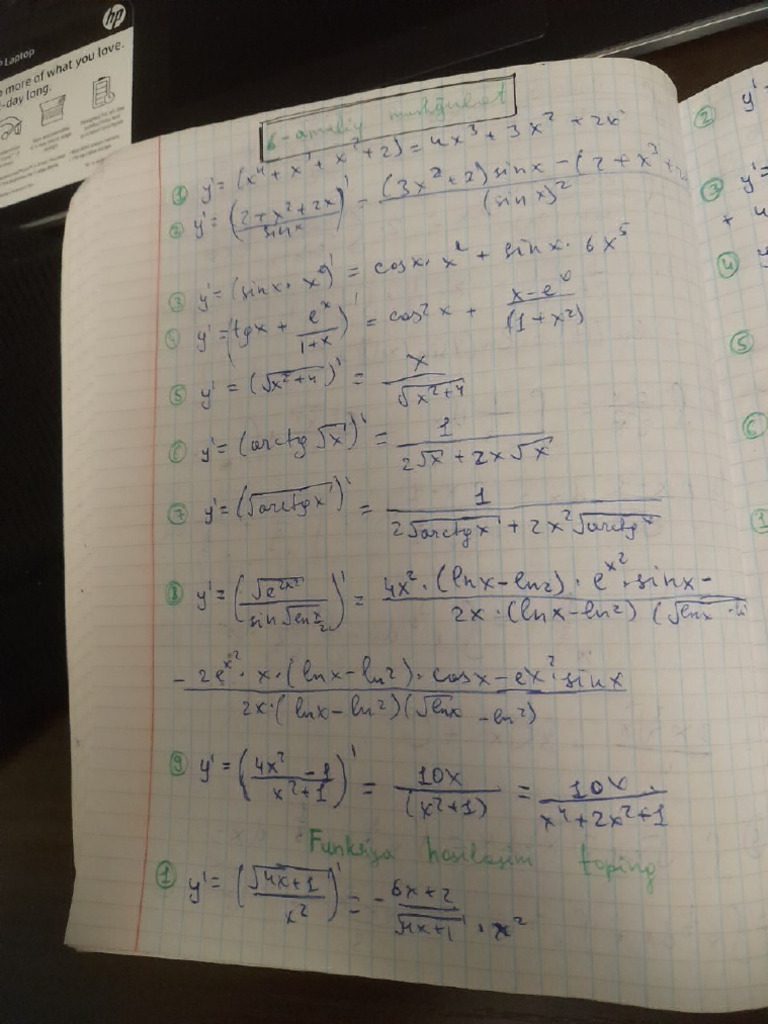 hp
Laptop
more of what you love.
-day long.
6-amaliy mashg'ulot
① y' = (x⁴ + x³ + x² + 2) = 4x³ + 3x² + 2x
② y' = (2+x²+2x / sinx)' = (3x²+2) sinx - (2 + x³ + / (sin x)²
③ y' = (sinx · x⁶)' = cosx · x⁶ + sinx · 6x⁵
y' = (tgx + eˣ / 1+x)' = cos²x + x-eˣ / (1+x²)
⑤ y' = (√x²+4)' = x / √x²+4
⑥ y' = (arctg √x)' = 1 / 2√x + 2x√x
⑦ y' = (√arctgx)' = 1 / 2√arctgx + 2x²√arctgx
⑧ y' = (√e^2x² / sin√lnx/2)' = 4x² · (lnx-ln2) · e^x² · sinx - / 2x · (lnx-ln2) (√lnx
- 2e^x² · x · (lnx-ln2) · cosx - e^x² · sinx / 2x · (lnx-ln2)(√lnx - ln2)
⑨ y' = (4x² - 1 / x²+1)' = 10x / (x²+1) = 10x / x⁴+2x²+1
Funksiya hosilasini toping
① y' = (√4x+1 / x²)' = - 6x+2 / √4x+1 · x²
② y'
③ y' =
+ 4
④ y
⑤
⑥
①